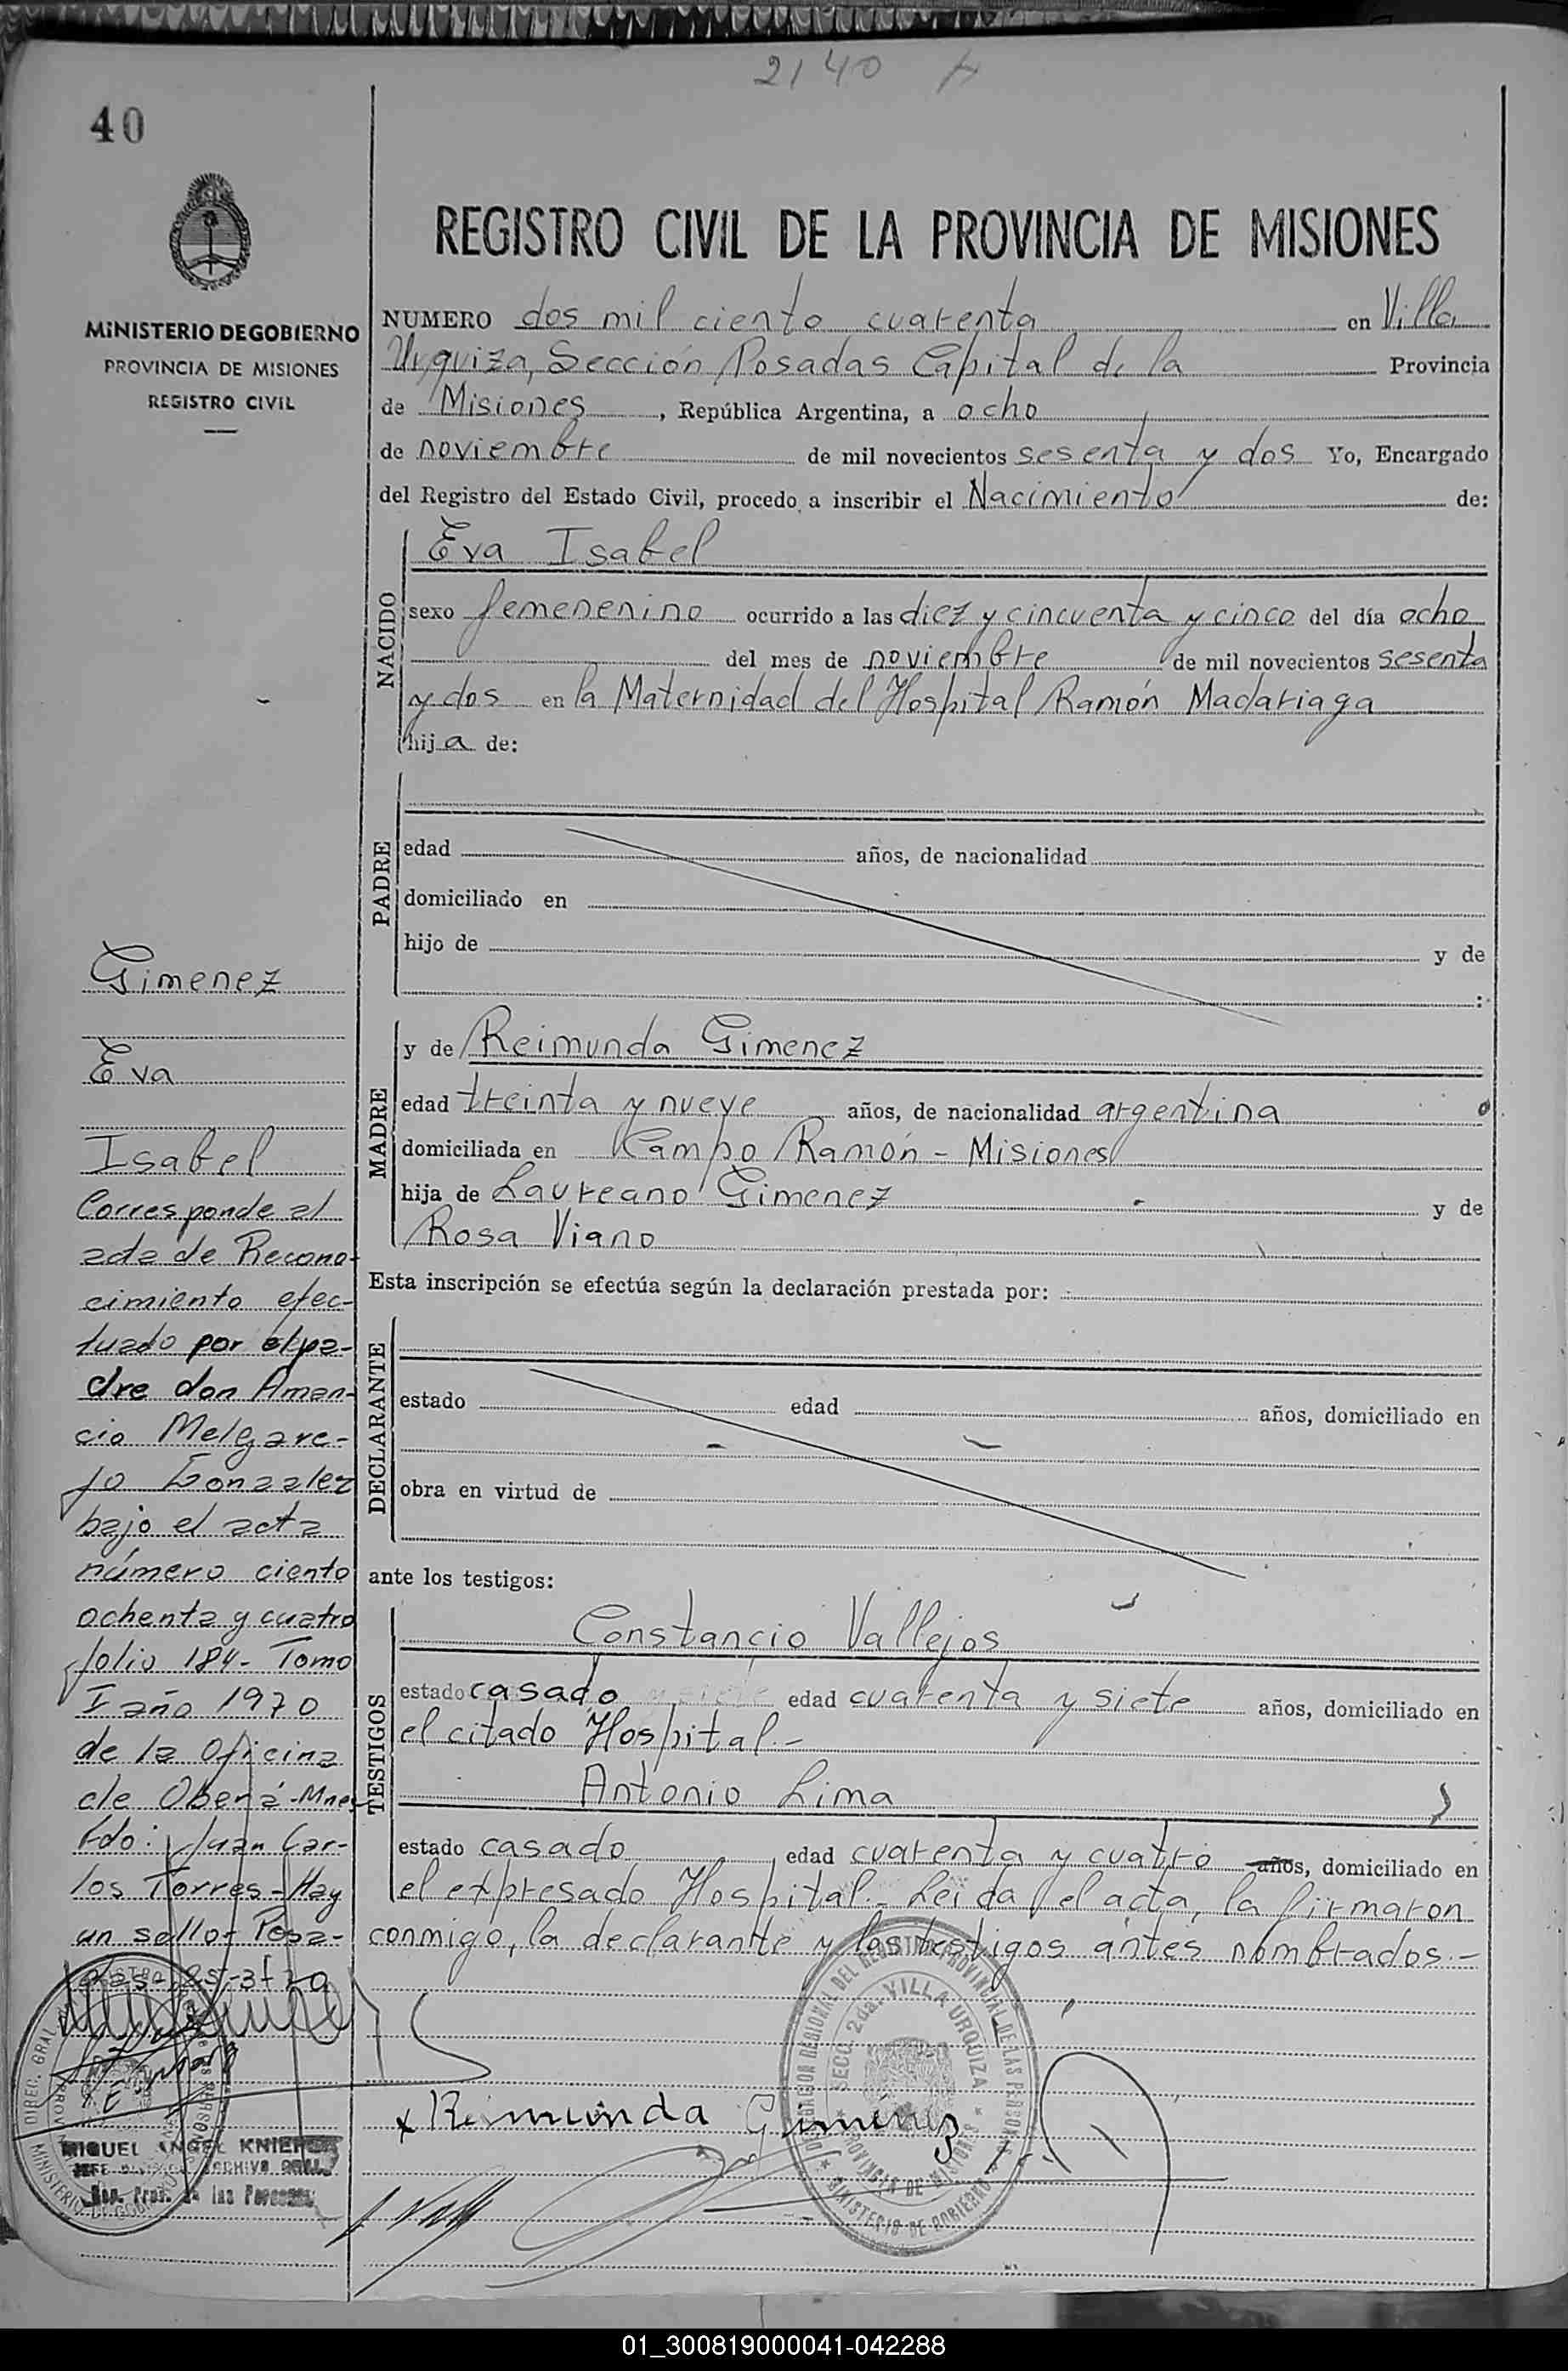 2140
40
MINISTERIO DE GOBIERNO
PROVINCIA DE MISIONES
REGISTRO CIVIL
REGISTRO CIVIL DE LA PROVINCIA DE MISIONES
NUMERO dos mil ciento cuarenta en Villa
Urquiza, Sección Posadas Capital de la Provincia
de Misiones, República Argentina, a ocho
de noviembre de mil novecientos sesenta y dos Yo, Encargado
del Registro del Estado Civil, procedo a inscribir el Nacimiento de:
NACIDO
Eva Isabel
sexo femenenino ocurrido a las diez y cincuenta y cinco del día ocho
del mes de noviembre de mil novecientos sesenta
y dos en la Maternidad del Hospital Ramón Madariaga
hija de:
PADRE
edad años, de nacionalidad
domiciliado en
hijo de y de
:
MADRE
y de Reimunda Gimenez
edad treinta y nueve años, de nacionalidad argentina
domiciliada en Campo Ramón - Misiones
hija de Laureano Gimenez y de
Rosa Viano
Esta inscripción se efectúa según la declaración prestada por:
DECLARANTE
estado edad años, domiciliado en
obra en virtud de
ante los testigos:
TESTIGOS
Constancio Vallejos
estado casado edad cuarenta y siete años, domiciliado en
el citado Hospital.-
Antonio Lima
estado casado edad cuarenta y cuatro años, domiciliado en
el expresado Hospital.- Leída el acta, la firmaron
conmigo, la declarante y los testigos antes nombrados.-
Gimenez
Eva
Isabel
Corresponde al
acta de Recono-
cimiento efec-
tuado por el pa-
dre don Aman-
cio Melgare-
jo Gonzalez
bajo el acta
número ciento
ochenta y cuatro
folio 184- Tomo
I año 1970
de la Oficina
de Oberá-Mnes
Fdo: Juan Car-
los Torres-Hay
un sello- Posa-
das- 25-3-70
x Reimunda Gimenez
SECC. 2da. VILLA URQUIZA
PROVINCIA DE MISIONES
MINISTERIO DE GOBIERNO
DELEGACION REGIONAL DEL REGISTRO PROVINCIAL DE LAS PERSONAS
MIGUEL ANGEL KNIE
Reg. Prov. de las Personas
01_300819000041-042288